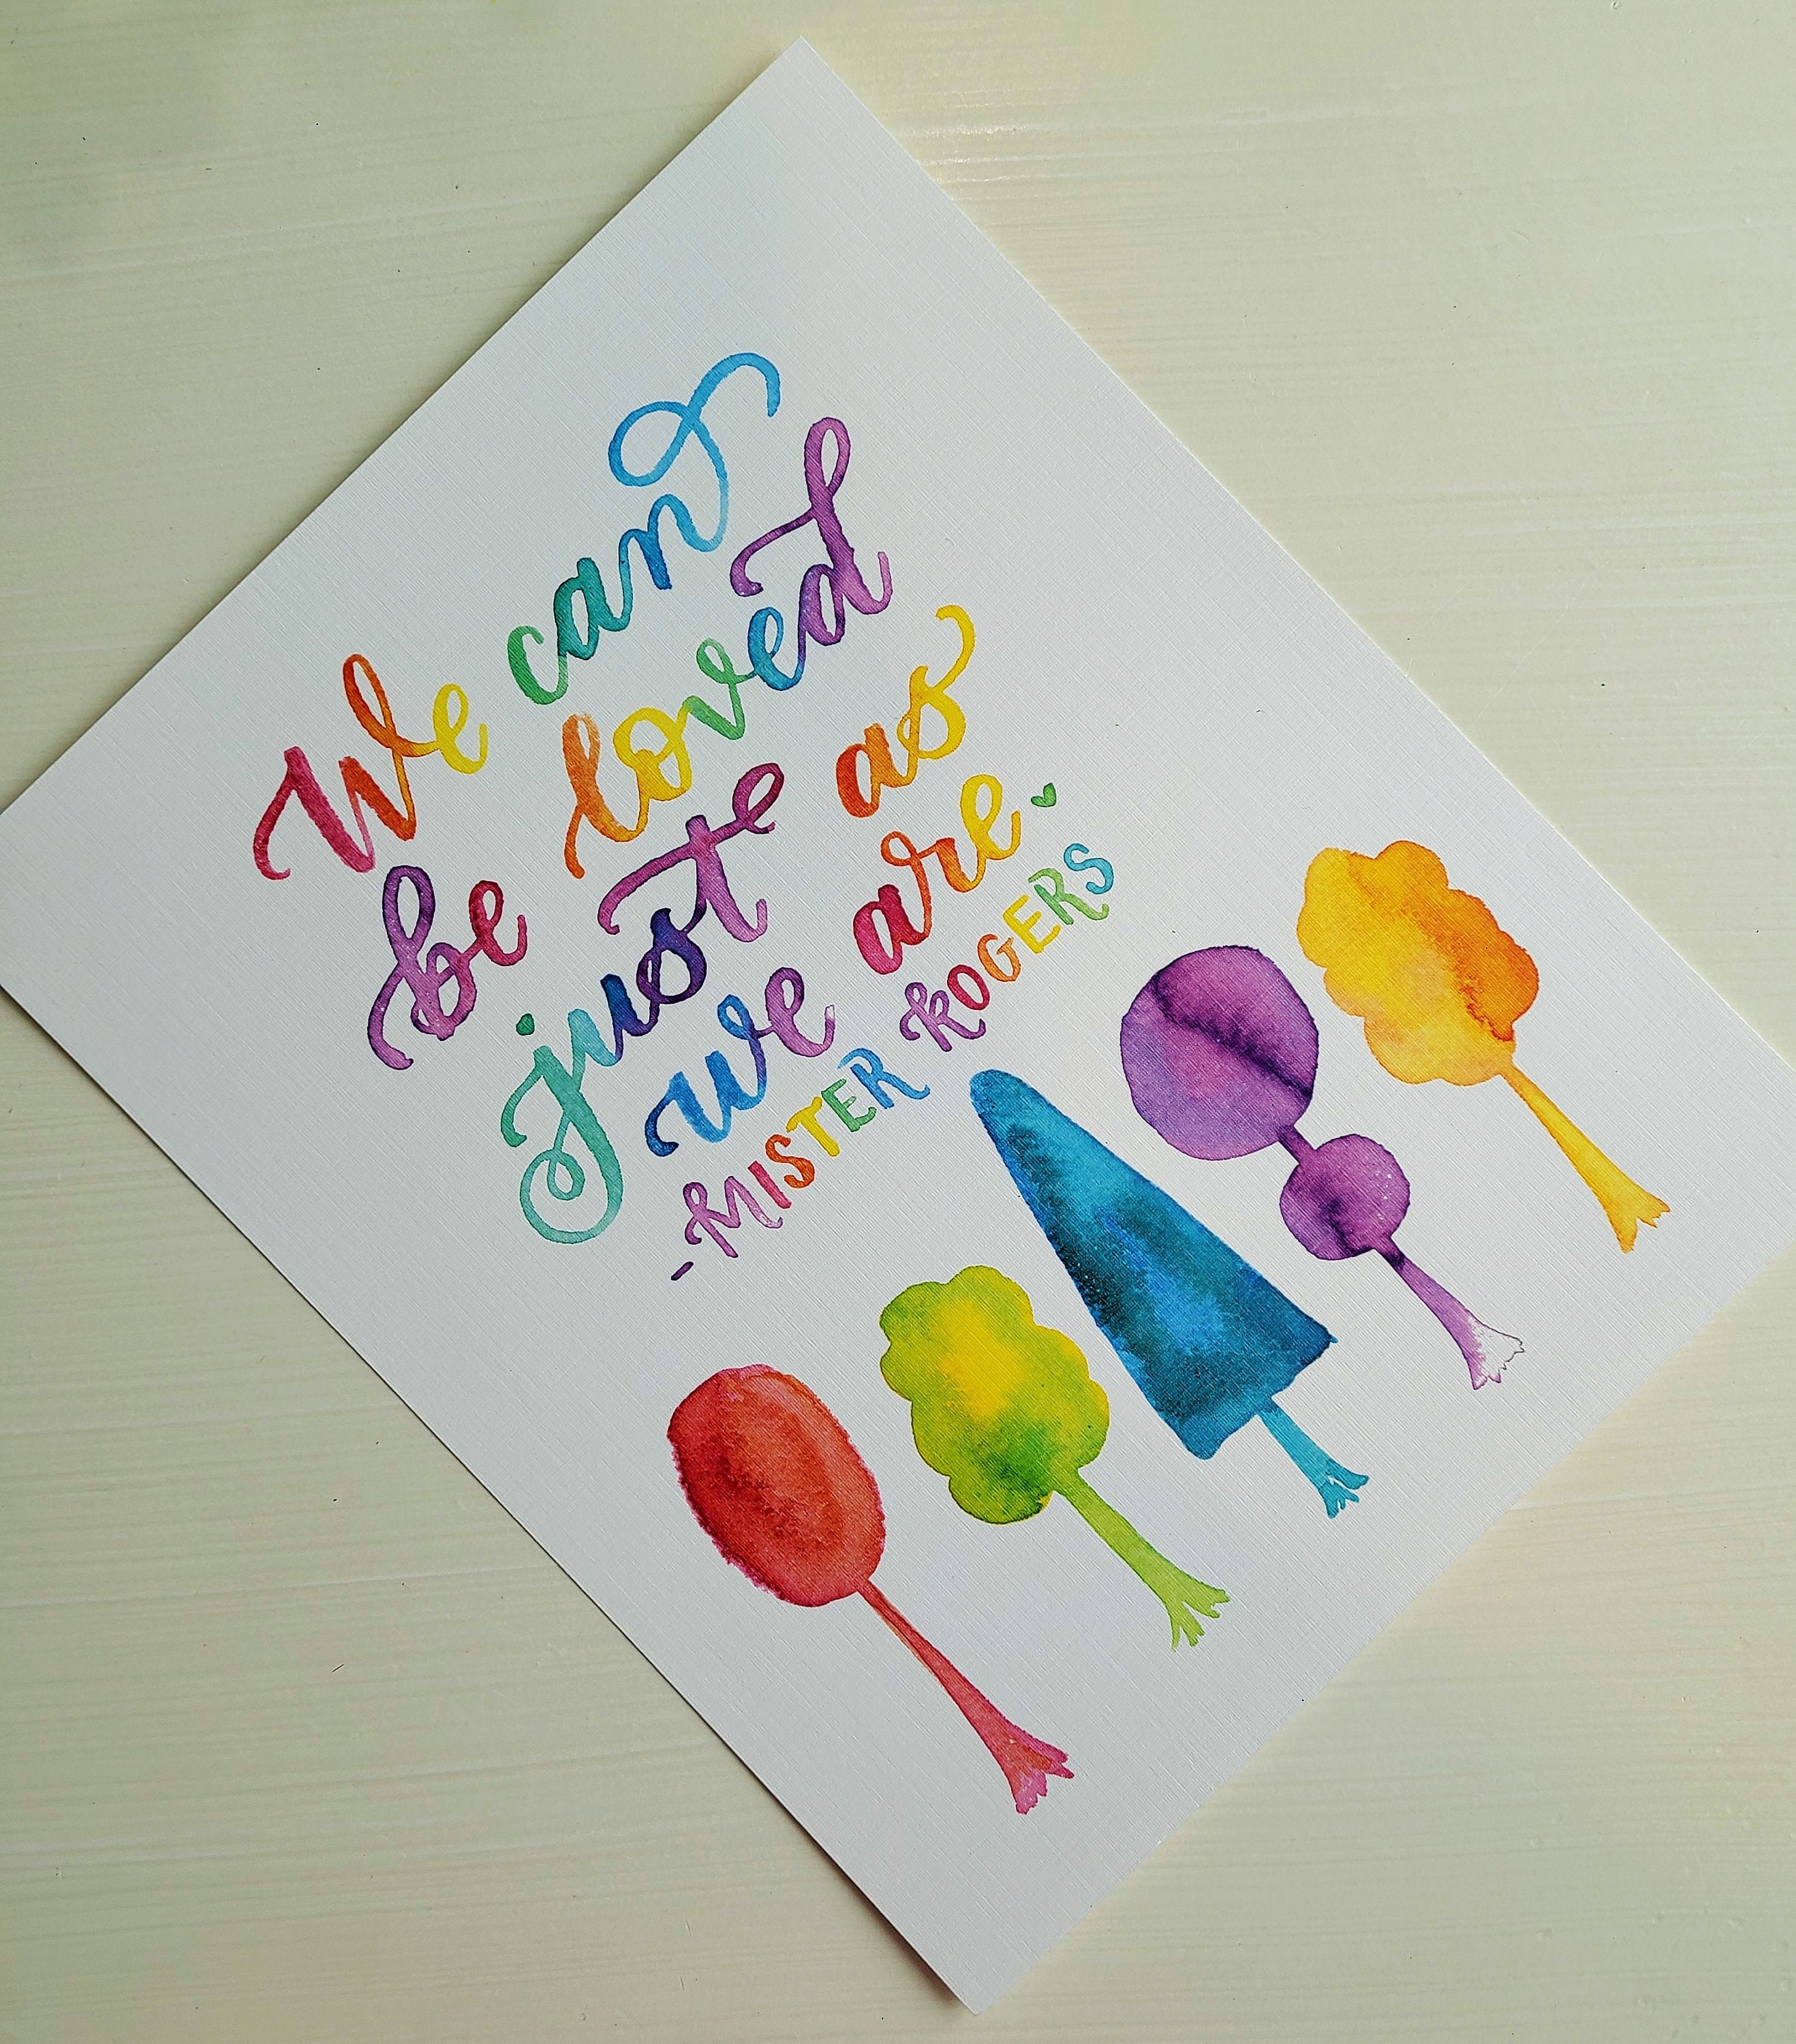 We can
be loved
just as
we are.
- MISTER ROGERS